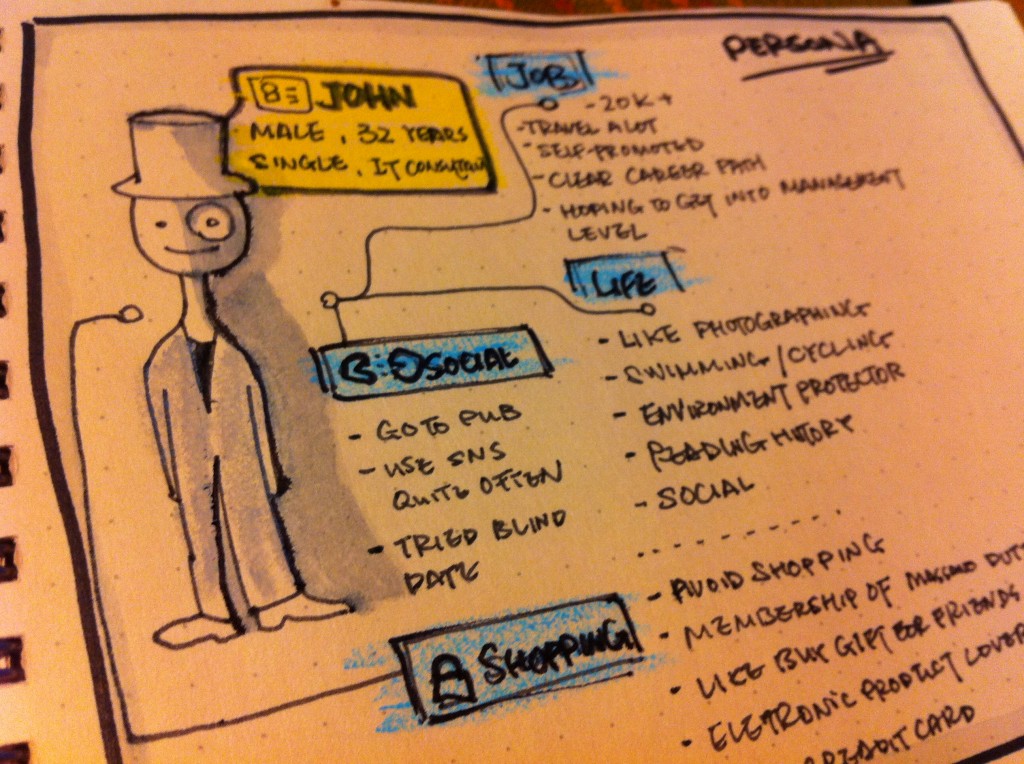 PERSONA
JOHN
MALE, 32 YEARS
SINGLE, IT CONSULTANT
JOB
- 20K+
- TRAVEL A LOT
- SELF-PROMOTED
- CLEAR CAREER PATH
- HOPING TO GET INTO MANAGEMENT
LEVEL
LIFE
- LIKE PHOTOGRAPHING
- SWIMMING/CYCLING
- ENVIRONMENT PROTECTOR
- READING HISTORY
- SOCIAL
SOCIAL
- GO TO PUB
- USE SNS
QUITE OFTEN
- TRIED BLIND
DATE
SHOPPING
- AVOID SHOPPING
- MEMBERSHIP OF MASSIMO DUT
- LIKE BUY GIFT FOR FRIENDS
- ELETRONIC PRODUCT LOVER
CARD